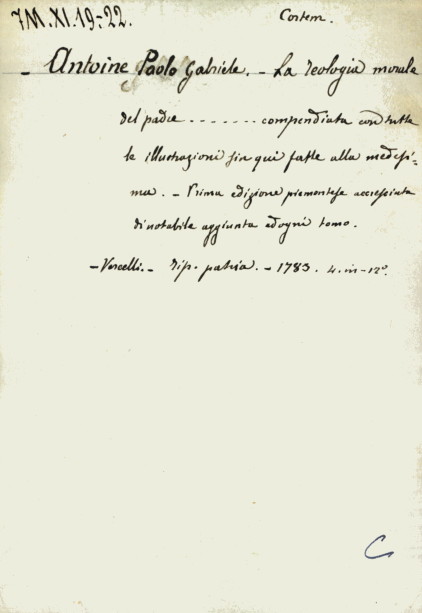 7M.XI.19-22.
Costem.
- Antoine Paolo Gabriele. - La Teologia morale
del padre ....... compendiata con tutte
le illustrazioni sin qui fatte alla medesi=
ma. - Prima edizione piemontese accresciuta
di notabile aggiunta ad ogni tomo.
- Vercelli. - Tip. patria. - 1783. 4. in-12°.
C